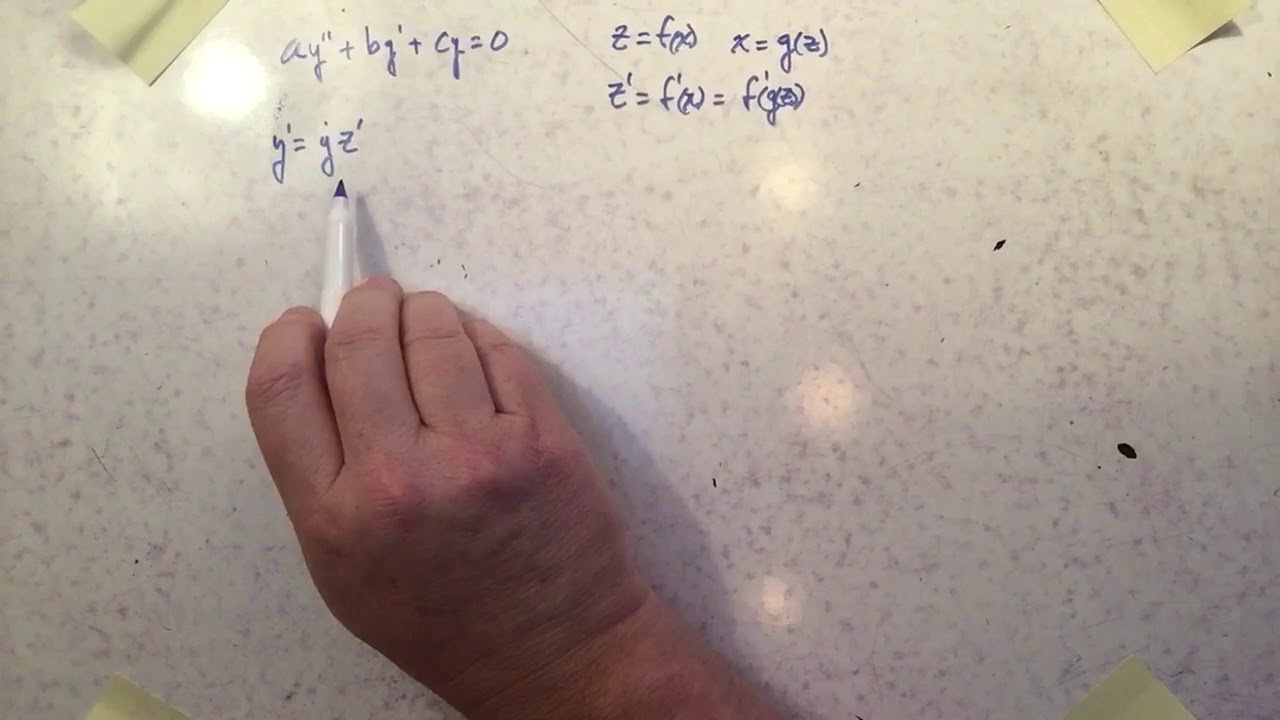 ay'' + by' + cy = 0
z = f(x) x = g(z)
z' = f'(x) = f'(g(z))
y' = ẏz'